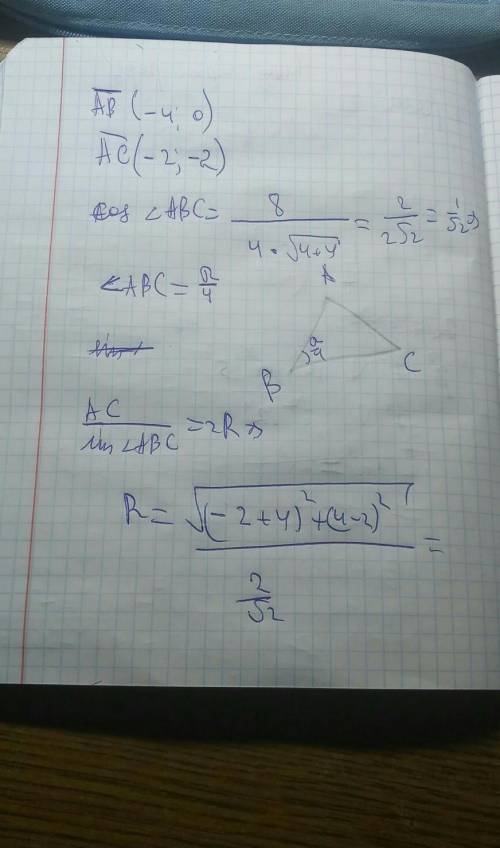 AB (-4; 0)
AC (-2; -2)
cos <ABC = 8 / (4 · √(4+4)) = 2 / (2√2) = 1/√2 =>
<ABC = π/4
A
π/4
B
C
AC / sin <ABC = 2R =>
R = √((-2+4)² + (4-2)²) / (2/√2) =